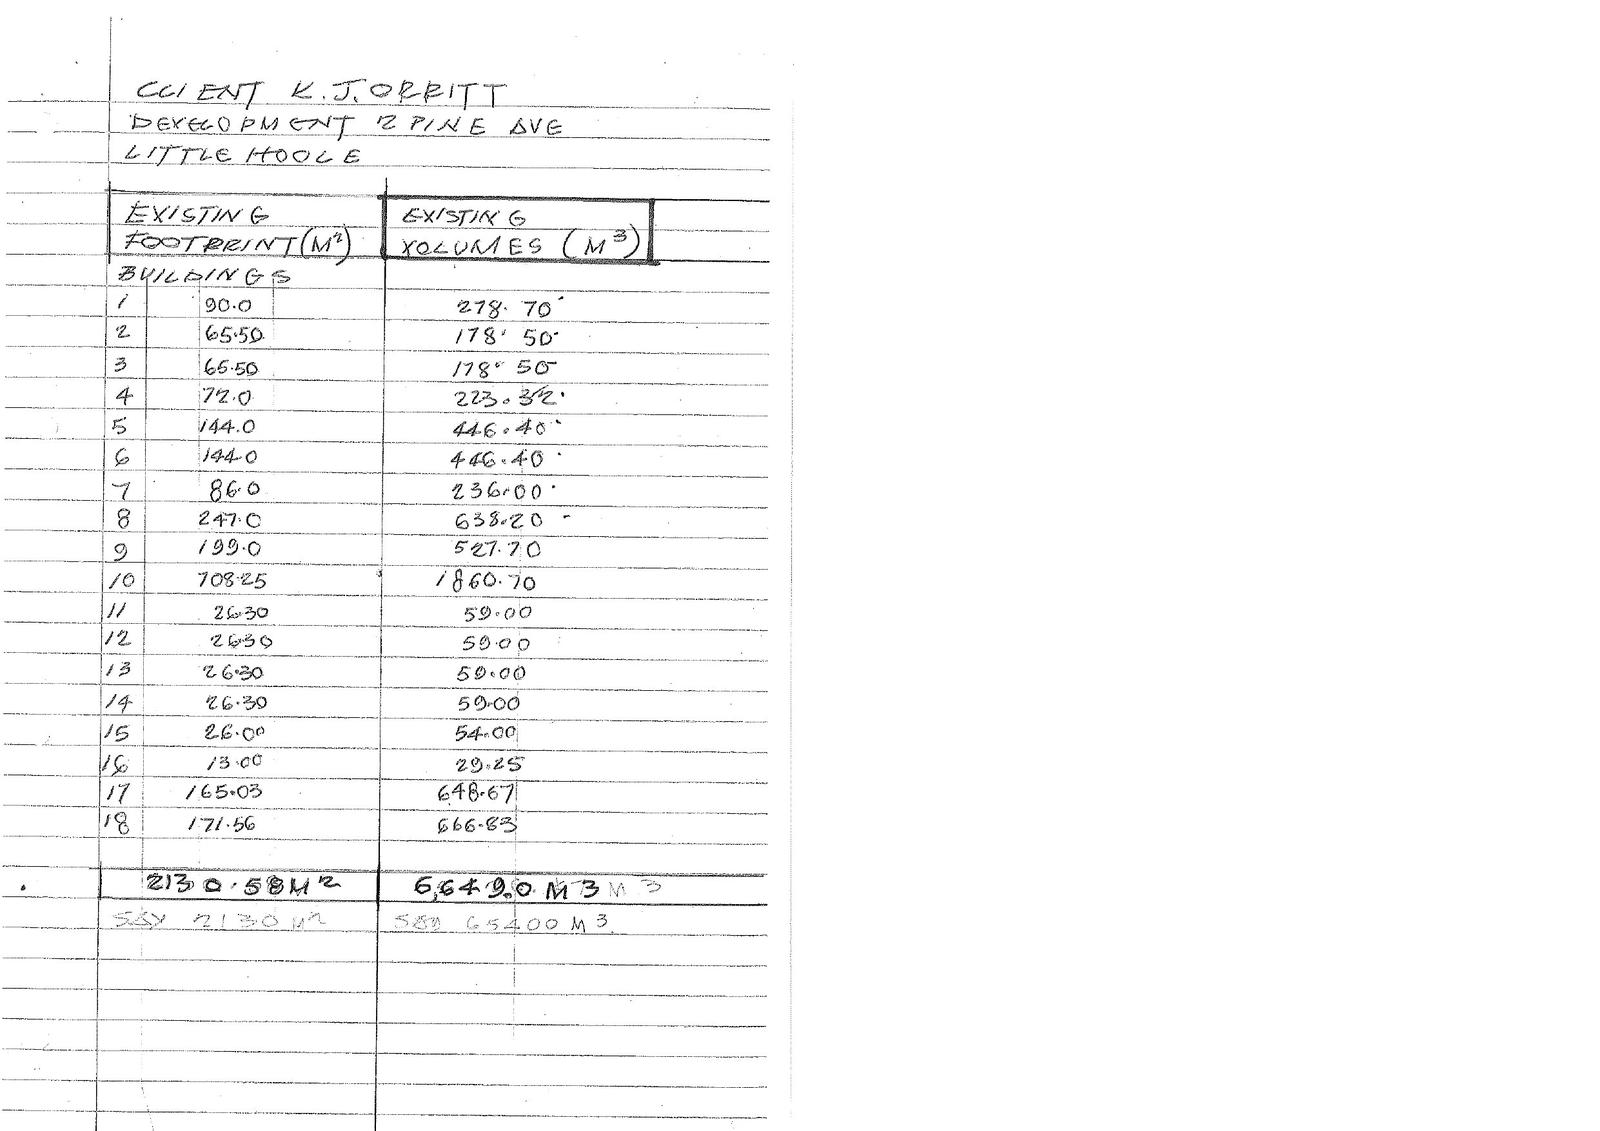 CLIENT K.J. ORRITT
DEVELOPMENT 2 PINE AVE
LITTLE HOOLE
EXISTING EXISTING
FOOTPRINT (M²) VOLUMES (M³)
BUILDINGS
1 90.0 278.70
2 65.50 178.50
3 65.50 178.50
4 72.0 223.32
5 144.0 446.40
6 144.0 446.40
7 86.0 236.00
8 247.0 638.20
9 199.0 527.70
10 708.25 1860.70
11 26.30 59.00
12 26.30 59.00
13 26.30 59.00
14 26.30 59.00
15 26.00 54.00
16 13.00 29.25
17 165.03 648.67
18 171.56 666.83
2130.58 M² 6,649.0 M3 M3
SAY 2130 M² SAY 65400 M3.